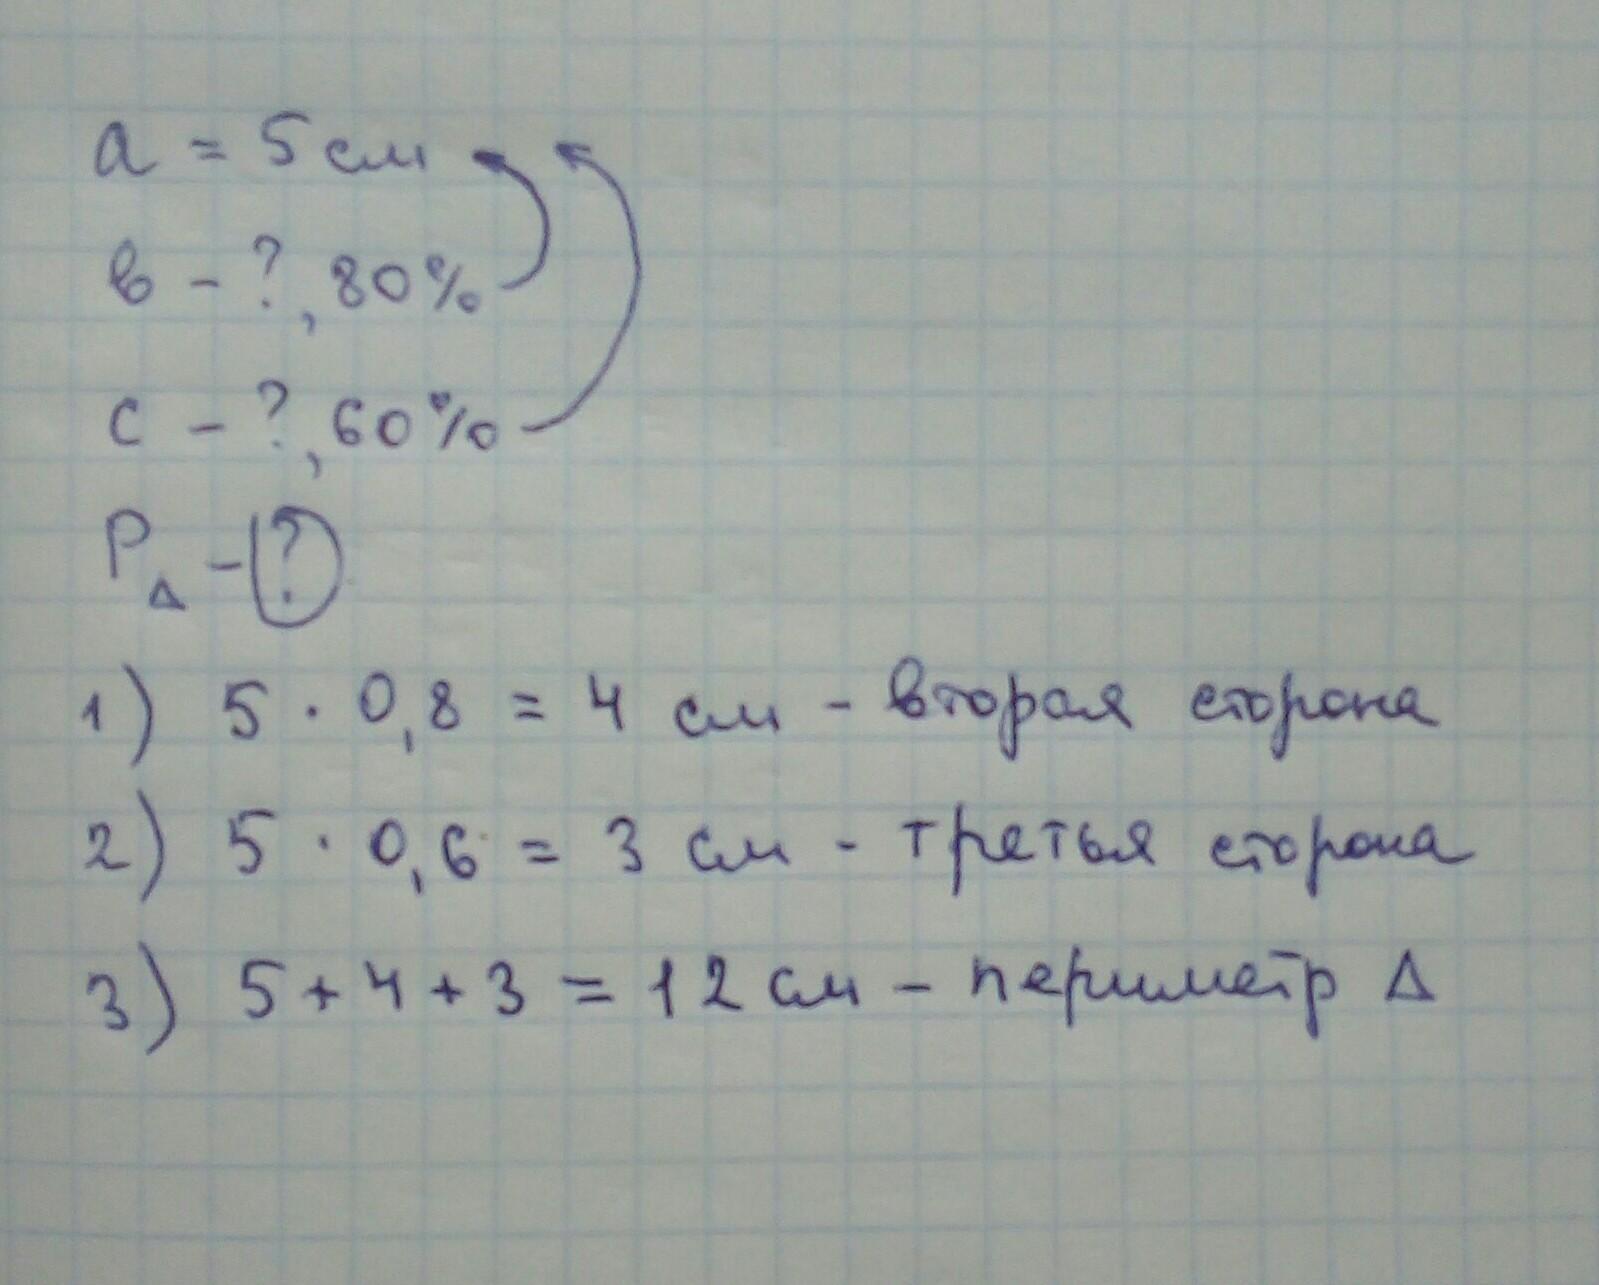 a = 5 см
в - ?, 80%
с - ?, 60%
P△ - ?
1) 5 · 0,8 = 4 см - вторая сторона
2) 5 · 0,6 = 3 см - третья сторона
3) 5 + 4 + 3 = 12 см - периметр △